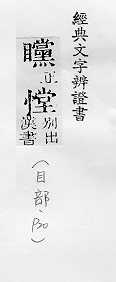 經典文字辨證書
矘正
憆別出
漢書
(目部·130)